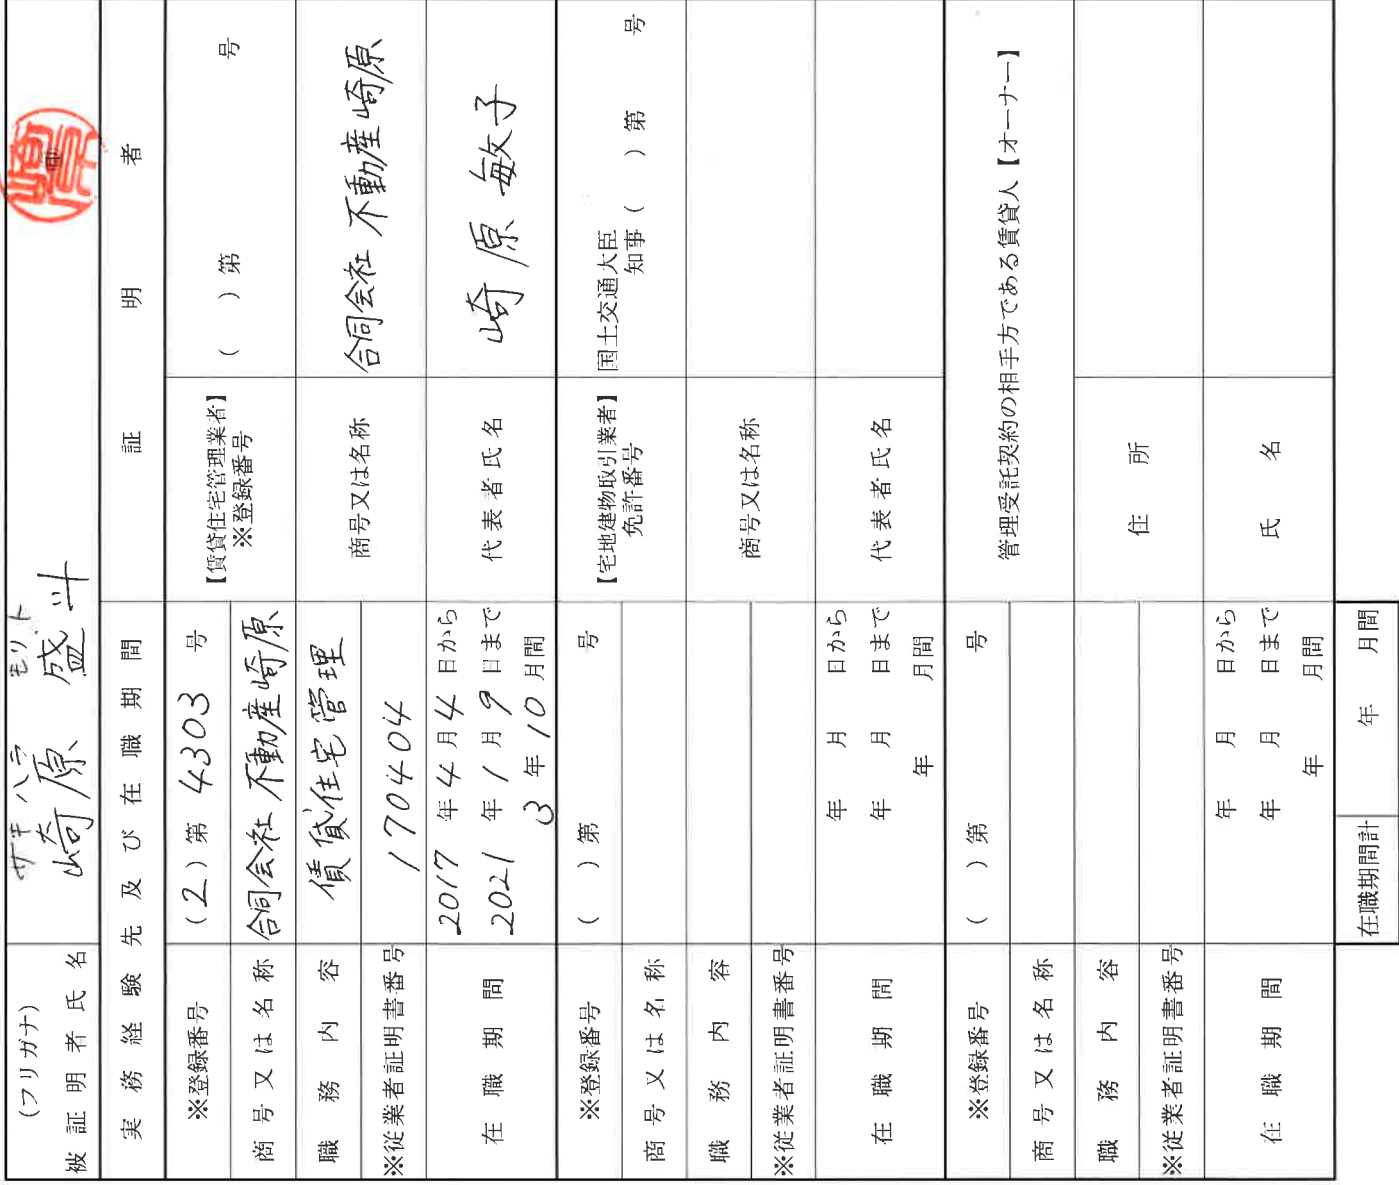 (フリガナ) サキハラ モリト
被証明者氏名 崎原 盛斗
実務経験先及び在職期間 証明者
※登録番号 (2)第 4303 号
【賃貸住宅管理業者】
※登録番号
( )第 号
商号又は名称 合同会社 不動産崎原
商号又は名称 合同会社 不動産崎原
職務内容 賃貸住宅管理
※従業者証明書番号 170404
代表者氏名 崎原 敏子
在職期間
2017 年 4 月 4 日から
2021 年 1 月 9 日まで
3 年 10 月間
※登録番号 ( )第 号
【宅地建物取引業者】
免許番号
国土交通大臣
知事 ( )第 号
商号又は名称
商号又は名称
職務内容
※従業者証明書番号
代表者氏名
在職期間
年 月 日から
年 月 日まで
年 月間
※登録番号 ( )第 号
管理受託契約の相手方である賃貸人【オーナー】
商号又は名称
職務内容
住所
※従業者証明書番号
在職期間
年 月 日から
年 月 日まで
年 月間
氏名
在職期間計 年 月間